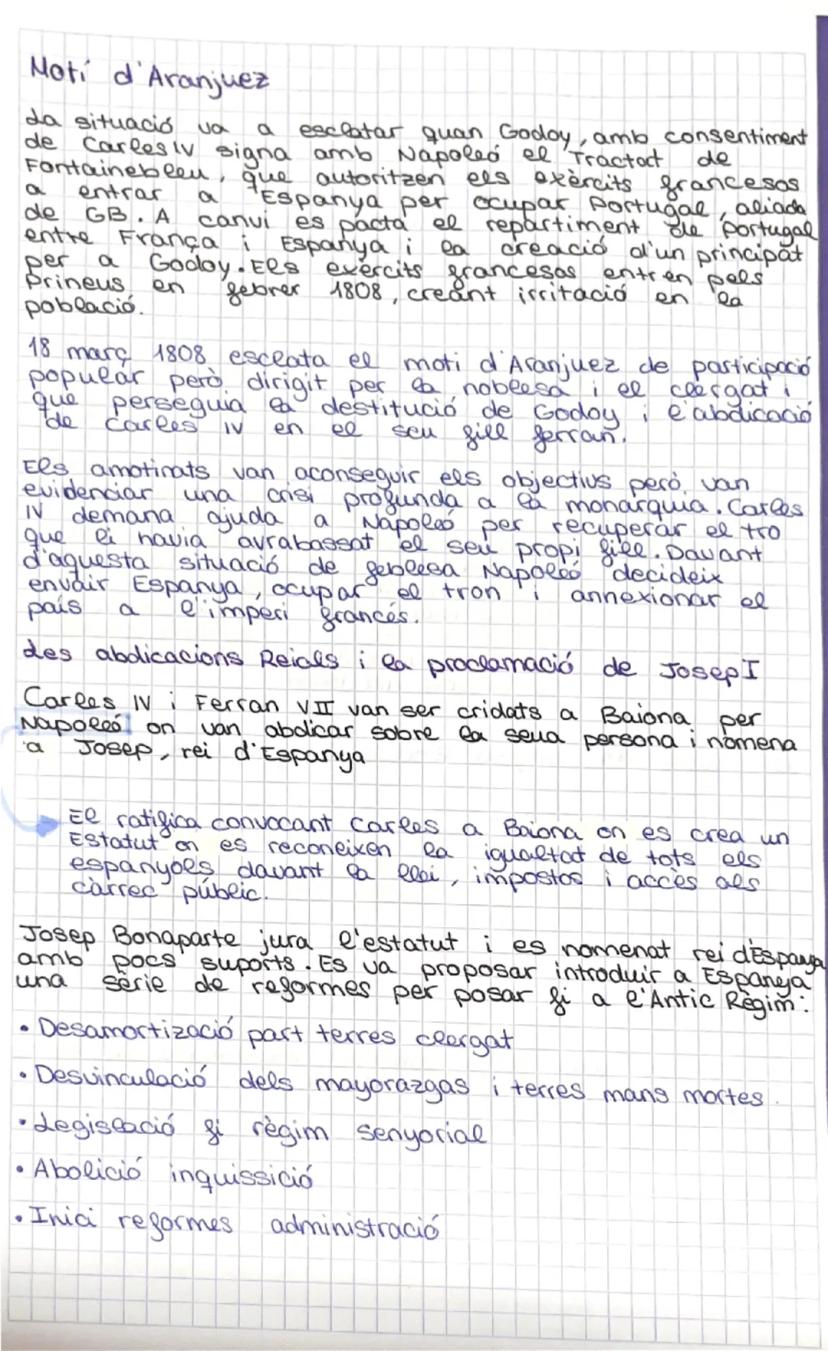 Motí d'Aranjuez
La situació va a esclatar quan Godoy, amb consentiment
de Carles IV signa amb Napoleó el Tractat de
Fontainebleu, que autoritzen els exèrcits francesos
a entrar a Espanya per ocupar Portugal, aliada
de GB. A canvi es pacta el repartiment de Portugal
entre França i Espanya i la creació d'un principat
per a Godoy. Els exèrcits francesos entren pels
Prineus en febrer 1808, creant irritació en la
població.
18 març 1808 esclata el motí d'Aranjuez de participació
popular però dirigit per la noblesa i el clergat i
que perseguia la destitució de Godoy i l'abdicació
de Carles IV en el seu fill Ferran.
Els amotinats van aconseguir els objectius però van
evidenciar una crisi profunda a la monarquia. Carles
IV demana ajuda a Napoleó per recuperar el tro
que li havia avrabassat el seu propi fill. Davant
d'aquesta situació de feblesa Napoleó decideix
envair Espanya, ocupar el tron i annexionar el
país a l'imperi francés.
Les abdicacions Reials i la proclamació de Josep I
Carles IV i Ferran VII van ser cridats a Baiona per
Napoleó on van abdicar sobre la seua persona i nomena
a Josep, rei d'Espanya
El ratifica convocant Carles a Baiona on es crea un
Estatut on es reconeixen la igualtat de tots els
espanyols davant la llei, impostos i accès als
càrrec públic.
Josep Bonaparte jura l'estatut i es nomenat rei d'Espanya
amb pocs suports. Es va proposar introduir a Espanya
una sèrie de reformes per posar fi a l'Antic Règim:
• Desamortizació part terres clergat
• Desvinculació dels mayorazgas i terres mans mortes.
• Legislació fi règim senyorial
• Abolició inquissició
• Inici reformes administració